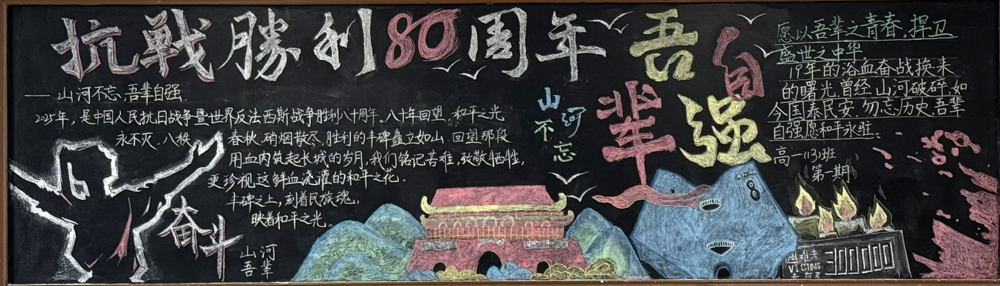 抗戰勝利80周年
——山河不忘、吾辈自强
2025年，是中国人民抗日战争暨世界反法西斯战争胜利八十周年。八十年回望，和平之光
永不灭，八秩春秋，硝烟散尽，胜利的丰碑矗立如山，回望那段
用血肉筑起长城的岁月，我们铭记苦难，致敬牺牲，
更珍视这鲜血浇灌的和平之花。
丰碑之上，刻着民族魂，
映着和平之光。
奋斗
山河
吾辈
山河
不忘
吾辈
自强
愿以吾辈之青春，捍卫
盛世之中华
19年的浴血奋战换来
的曙光，曾经山河破碎，如
今国泰民安，勿忘历史，吾辈
自强，愿和平永驻。
高一(3)班
(第一期)
8
遇难者
VICTIMS
300000